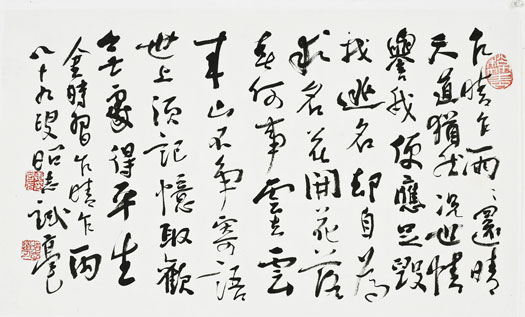 乍晴乍雨〻還晴
天道猶然況世情
譽我便應是毀
我逃名却自為
求名花開花落
春何事雲去雲
來山不爭寄語
世上須記憶取歡
無處得平生
金時習乍晴乍雨
八十九叟昭志試毫